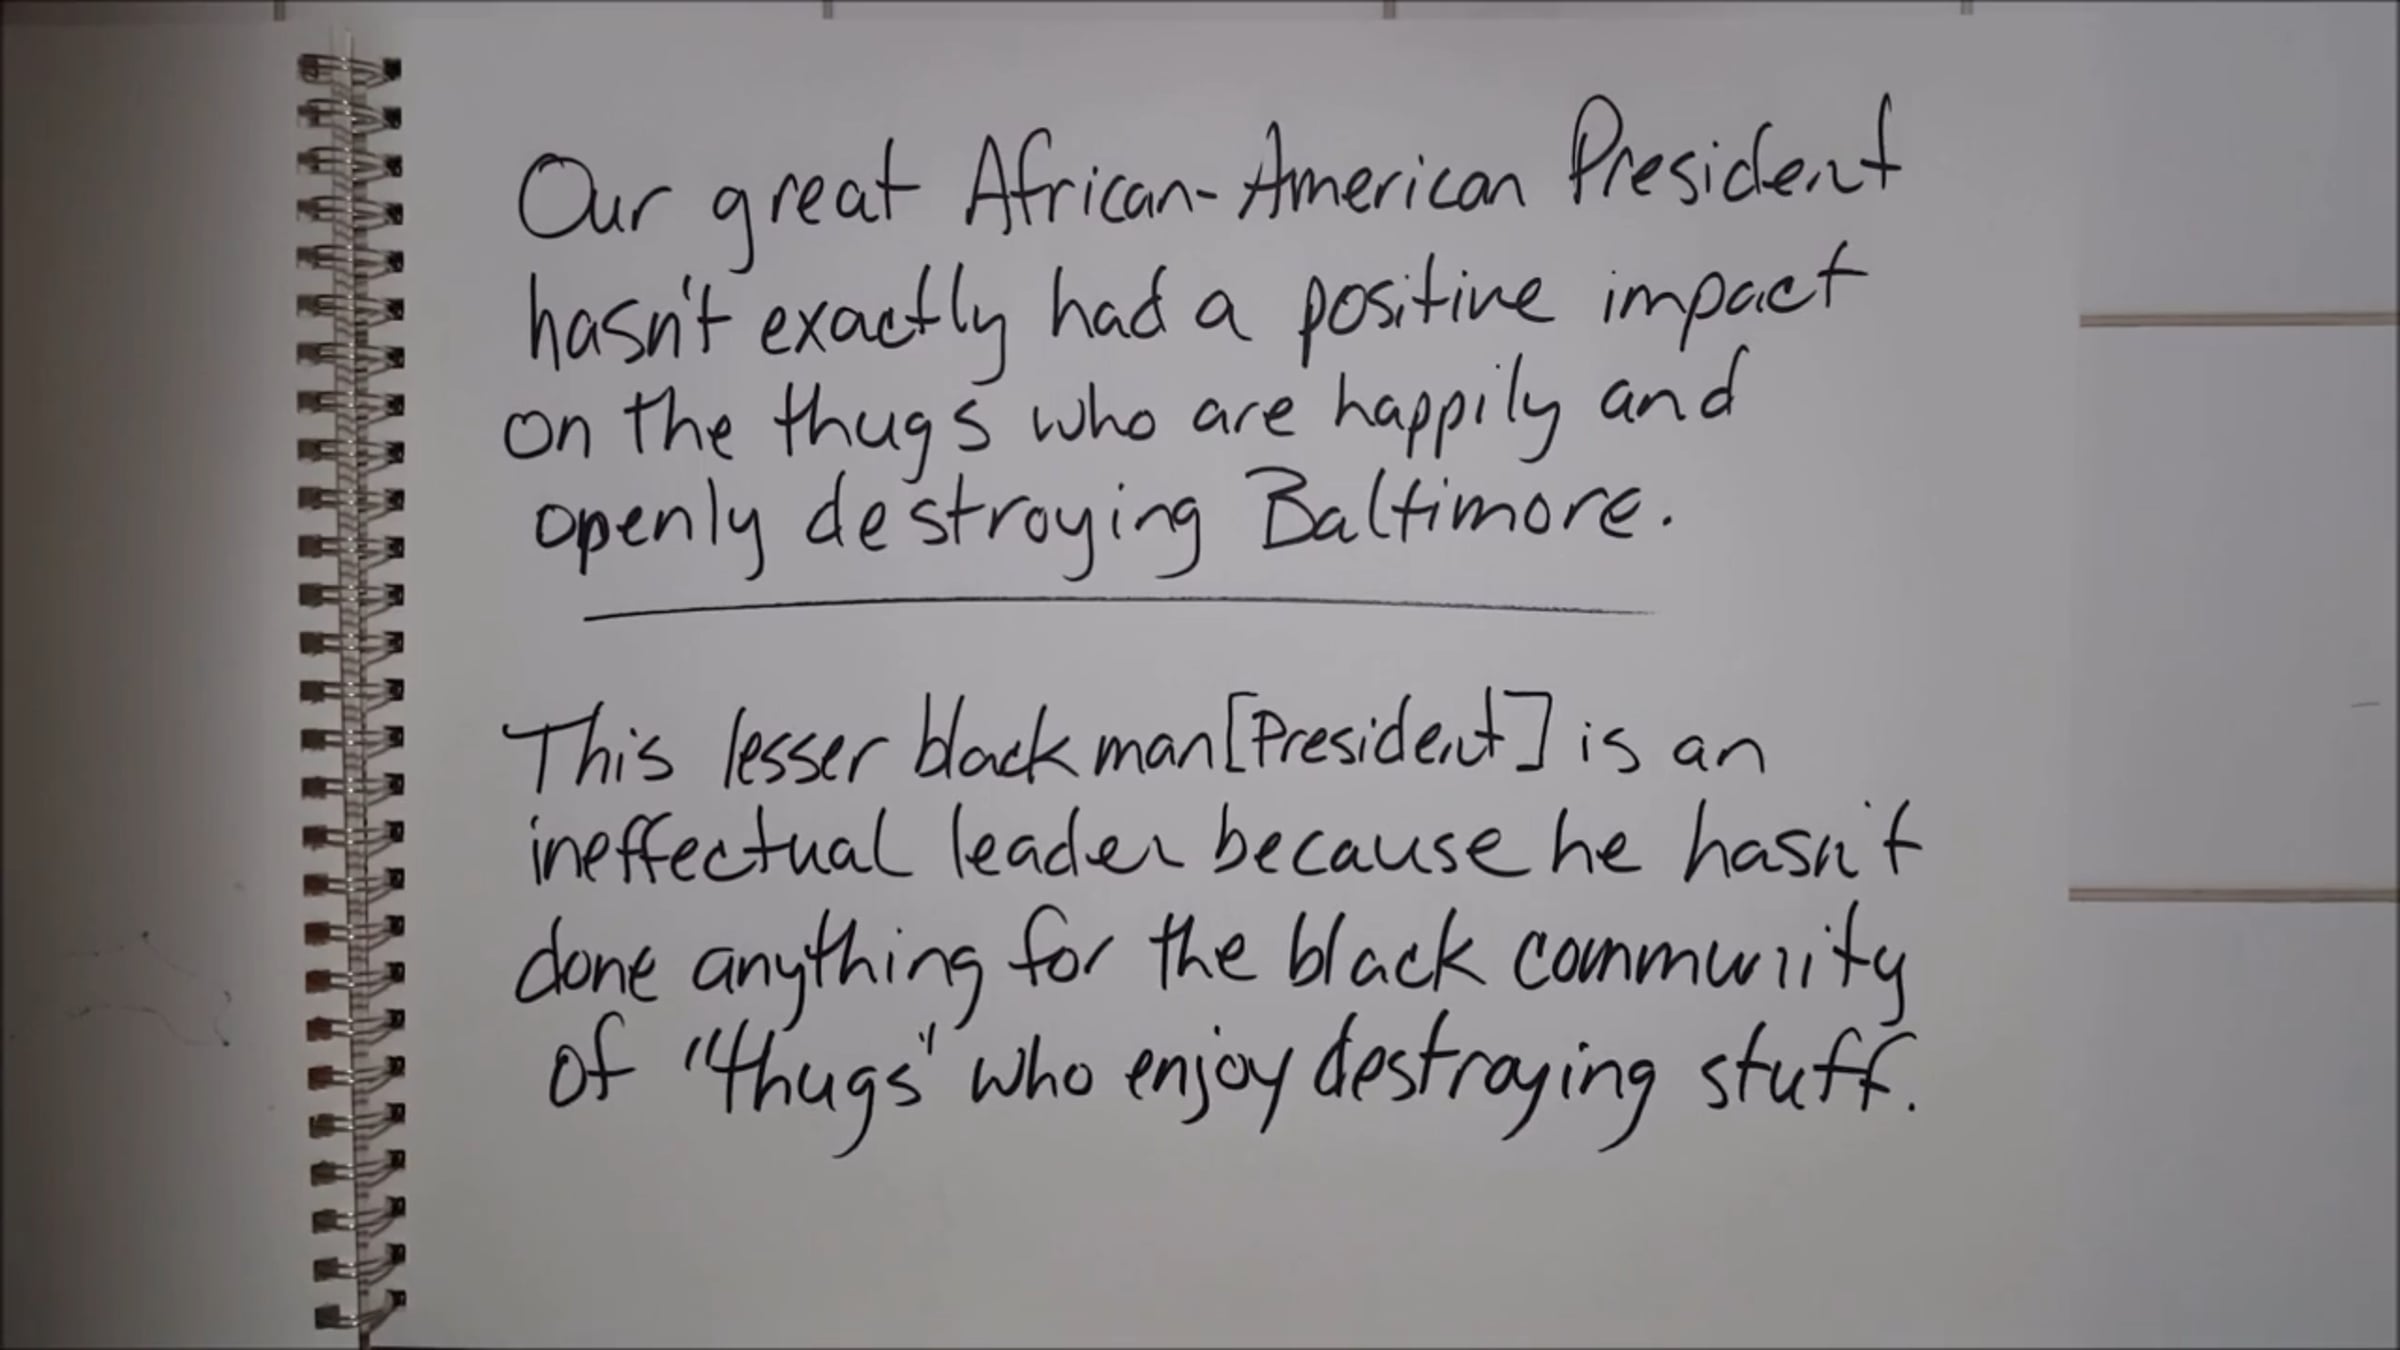 Our great African-American President
hasn't exactly had a positive impact
on the thugs who are happily and
openly destroying Baltimore.
This lesser black man [President] is an
ineffectual leader because he hasn't
done anything for the black community
of "thugs" who enjoy destroying stuff.